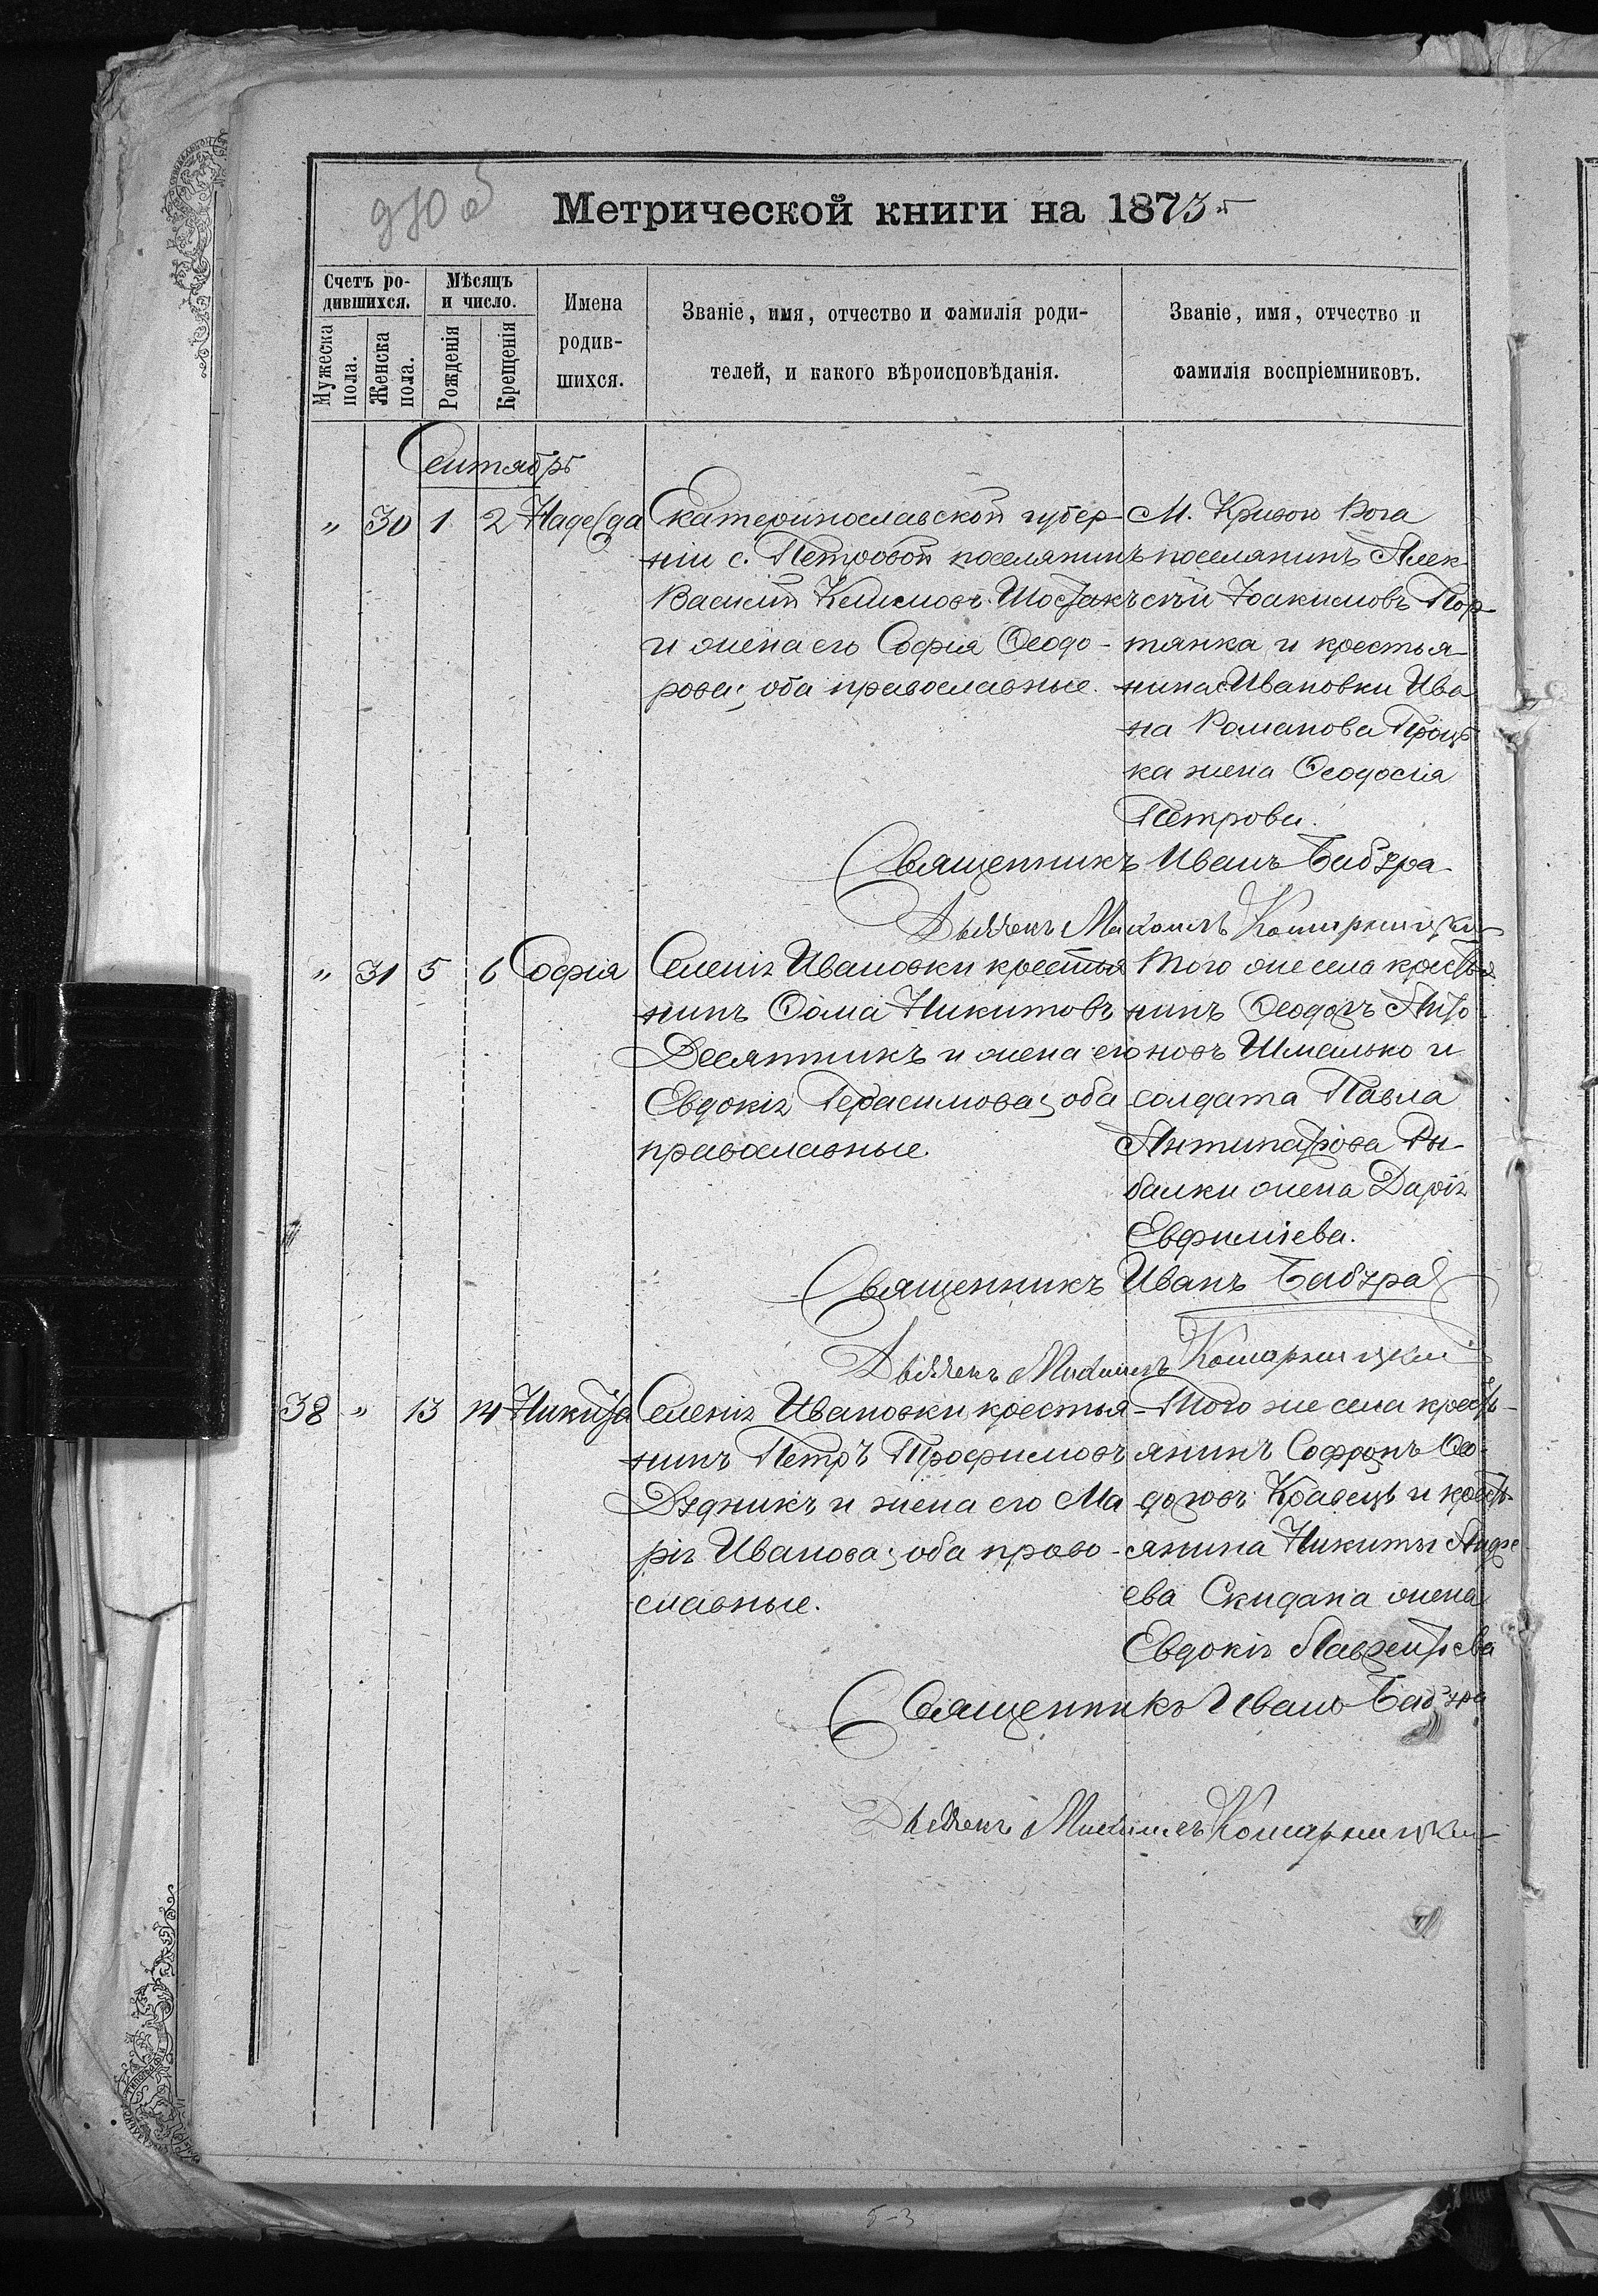 Метрической книги на 1875
Счетъ ро-
дившихся.
Мужеска пола.
Женска пола.
Мѣсяцъ
и число.
Рожденія
Крещенія
Имена
родив-
шихся.
Званіе, имя, отчество и фамилія роди-
телей, и какого вѣроисповѣданія.
Званіе, имя, отчество и
фамилія воспріемниковъ.
Сентябрь
" 30 1 2 Надежда
Екатеринославской губер-
ніи с. Петровой поселянинъ
Василій Климовъ Шостакъ
и жена его Софія Ѳеодо-
рова; оба православные.
М. Кривого Рога
поселянинъ Алек-
сѣй Іоакимовъ Пор-
тянка и крестья-
нина с. Ивановки Ива
на Романова Проць
ка жена Ѳеодосія
Петрова.
Священникъ Иванъ Бабура
Дьячекъ Михаилъ Комарницкій
" 31 5 6 Софія
Селенія Ивановки крестья
нинъ Ѳома Никитовъ
Десятникъ и жена его
Евдокія Герасимова; оба
православные.
Того же села крестья
нинъ Ѳеодоръ Анто
новъ Шмалько и
солдата Павла
Антипатрова Ры-
балки жена Дарія
Евфиміева.
Священникъ Иванъ Бабура
Дьячекъ Михаилъ Комарницкій
38 " 13 14 Никита
Селенія Ивановки крестья-
нинъ Петръ Трофимовъ
Дудникъ и жена его Ма
рія Иванова; оба право-
славные.
Того же села кресть-
янинъ Софронъ Ѳео-
доровъ Кравецъ и кресть-
янина Никиты Андре
ева Скидана жена
Евдокія Лаврентіева
Священникъ Иванъ Бабура
Дьячекъ Михаилъ Комарницкій
5-3